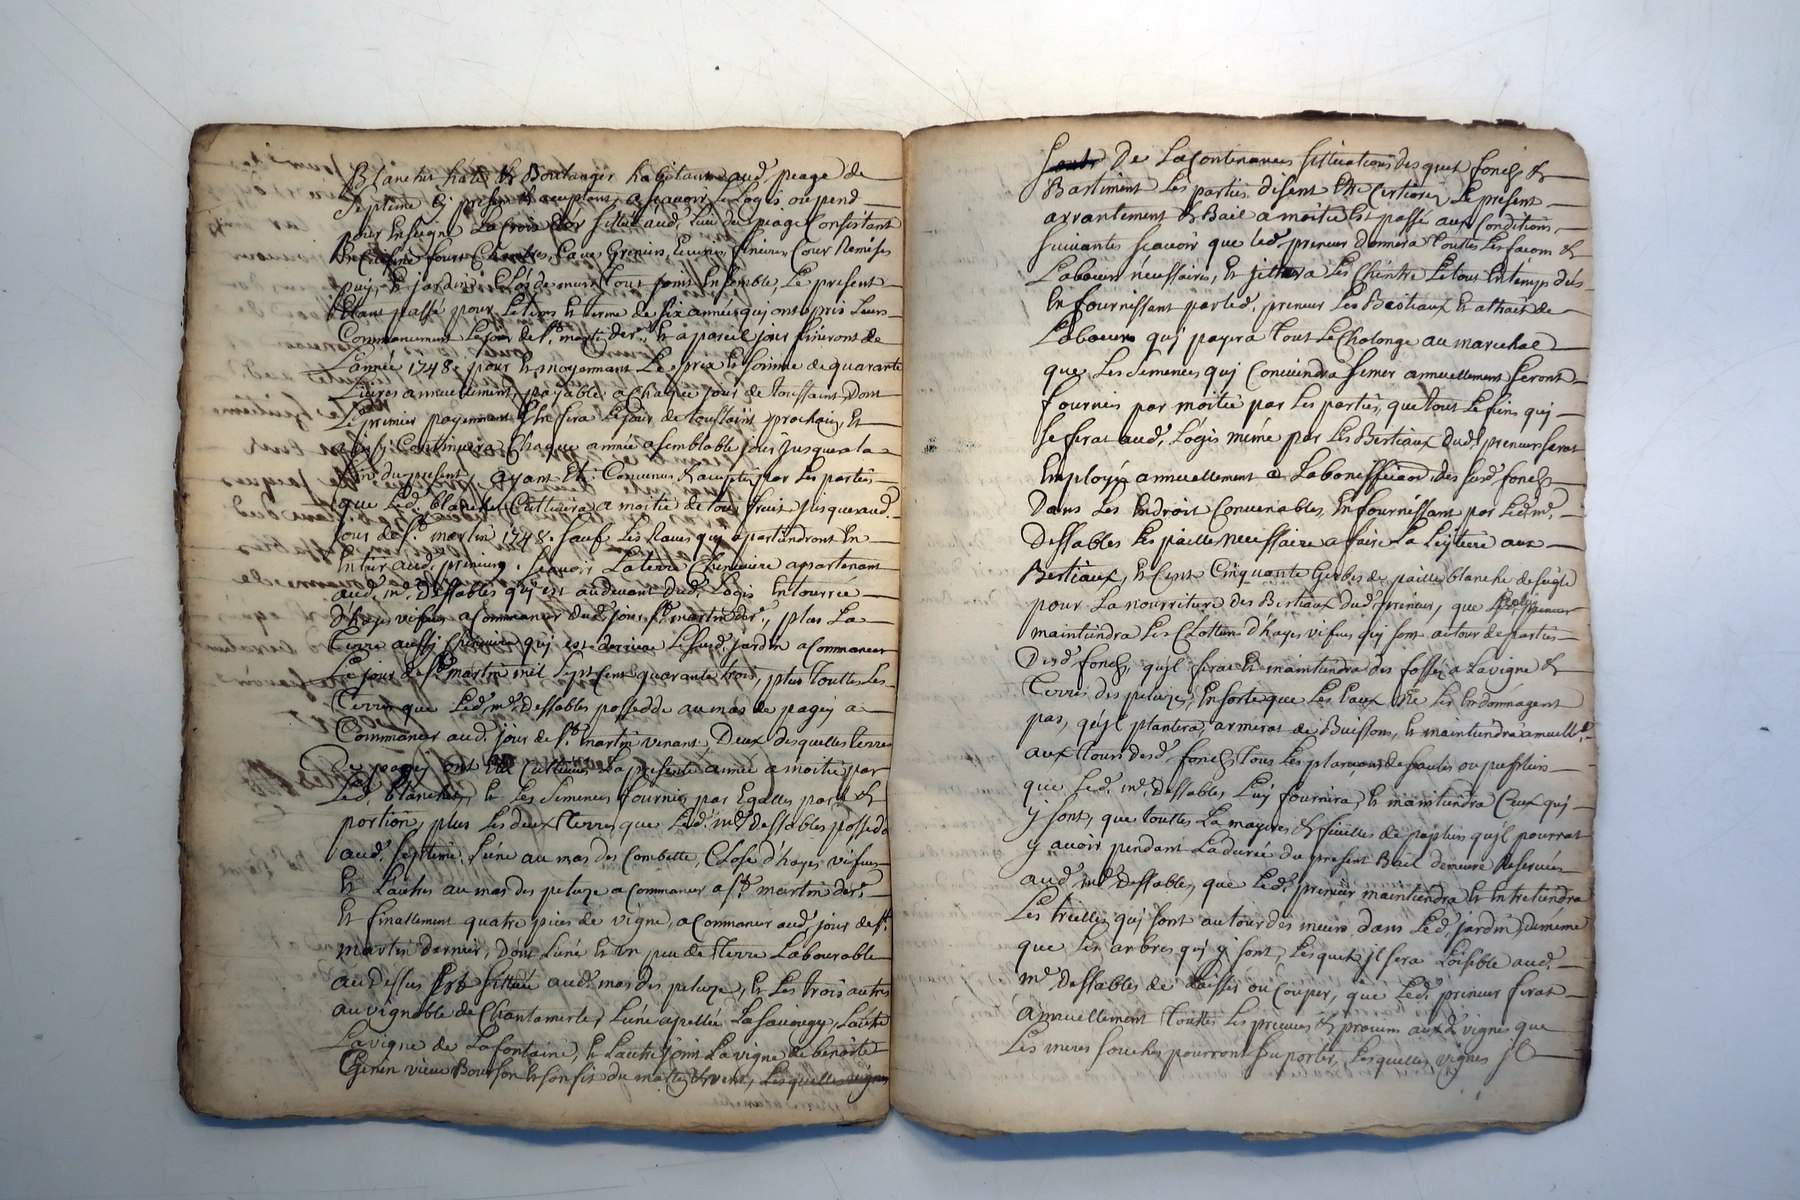 Blanchet haté & Boulanger habitans aud. peage de
Septeme Cy present & acceptant, a scavoir le Logis ou pend
pour Enseigne La Croix d'or scittué aud. Lieu du peage Consistant
En Cuisine fours Chambres, Caves Greniers, Ecuries, fineires Cour Remises
puy, & jardin Clos de murs Tout joint Ensemble, Le present
Etant passé pour Le tems & terme de six années qui ont pris Leurs
Commancement Le jour de st. martin der., & a pareil jour finiront de
L'année 1748. pour & moyennant Le prix & somme de quarante
Livres annuellement, payable a Chaque jour de Toussaint Dont
Le premier payement Se fera Le jour de toussaint prochain, &
ainsy Continuera Chaque année a semblable jour jusques a la
fin du present, ayant Eté Convenus & accepté par Les parties
que Led. blanchet Cultivera a moitié de tous fruit jusques aud.
jour de st. martin 1748. sauf Les Raves qui apartiendront En
Entier aud. preneur. Scavoir La terre Cheneviere apartenant
aud. mr. Dessables qui est au devant dud. Logis Entourrée
D'hayes vifves a Commancer dud. jour st. martin der., plus La
Terre aussy Cheneviere qui est derriere Le susd. jardin a Commancer
Le jour de st. martin mil sept Cent quarante trois, plus Touttes Les
Terres que Led. mr. Dessables possedde au mas de pagey a
Commancer aud. jour de st. martin venant, Deux desquelles terres
De pagey ont Eté Cultivées La presente année a moitié par
Led. blanchet, & Les Semences fournies par Egalles part &
portion, plus Les deux Terres que Led. mr. Dessables possede
aud. Septeme, L'une au mas des Combette, Close d'hayes vifves
& L'autre au mas des peluze a Commancer a st. martin der.
Et finallement quatre pieces de vigne, a Commancer aud. jour de st.
martin dernier, Dont L'une & un peu de Terre Labourable
au dessus scittué aud. mas des peluze, & Les trois autres
au vignoble de Chantemerle, L'une apellée La Sauvegy, L'autre
La vigne de La fontaine, & L'autre joint La vigne de benoite
Genin vieve Bourson & son fis du matin & vent, Lesquelles vignes
De La Contenances scittuations desquet fonds &
Bastiment Les parties disent Etre Certiorés, Le present
arrantement & Bail a moitié Est passé aux Conditions
Suivantes scavoir que Led. preneur donnera Touttes Les facons &
Labours nécessaires, & jettera Les Cheintre Le tout En temps dés
En fournissant par Led. preneur Les Bestiaux & attrait de
Labours qui payera Tout Le Chalonge au marechal
que Les Semences qui Conviendra Semer annuellement Seront
fournies par moitié par Les parties, que tout Le fiens qui
Se ferat aud. Logis même par Les Bestiaux dud. preneur serat
Employé annuellement a La bonnifficaon. des susd. fonds
Dans Les Endroit Convenables, En fournissant par Led. mr.
Dessables Les pailles necessaire a faire La Leytiere aux
Bestiaux, & Cent Cinquante Gerbes de paille blanche de seigle
pour La nourriture des Bestiaux dud. preneur, que Led. preneur
maintiendra Les Clottures d'hayes vifves qui sont autour de partis
Desd. fonds, qu'jl ferat & maintiendra des fossés a La vigne &
Terres des peluze, En sorte que Les Eaux Ne Les Endomagent
pas, qu'jl plantera, armerat de Buissons, & maintiendra anuellt.
aux tour desd. fonds, Tous Les plancons de saules ou pupliers
que Led. mr. Dessables Luy fournira, & maintiendra Ceux qui
y sont, que touttes La mayeres & fueilles de pupliers qu'jl pourrat
y avoir pendant La durée du present Bail demeure Reservées
aud. mr. Dessables, que Led. preneur maintiendra & Entretiendra
Les treilles qui sont autour des murs dans Led. jardin, de même
que Les arbres qui y sont, Lesquet jl sera Loisible aud.
mr. Dessables de Laisser ou Couper, que Led. preneur ferat
annuellement Touttes Les preuves & provins auxd. vignes que
Les meres souches pourront suporter, Lesquelles vignes jl